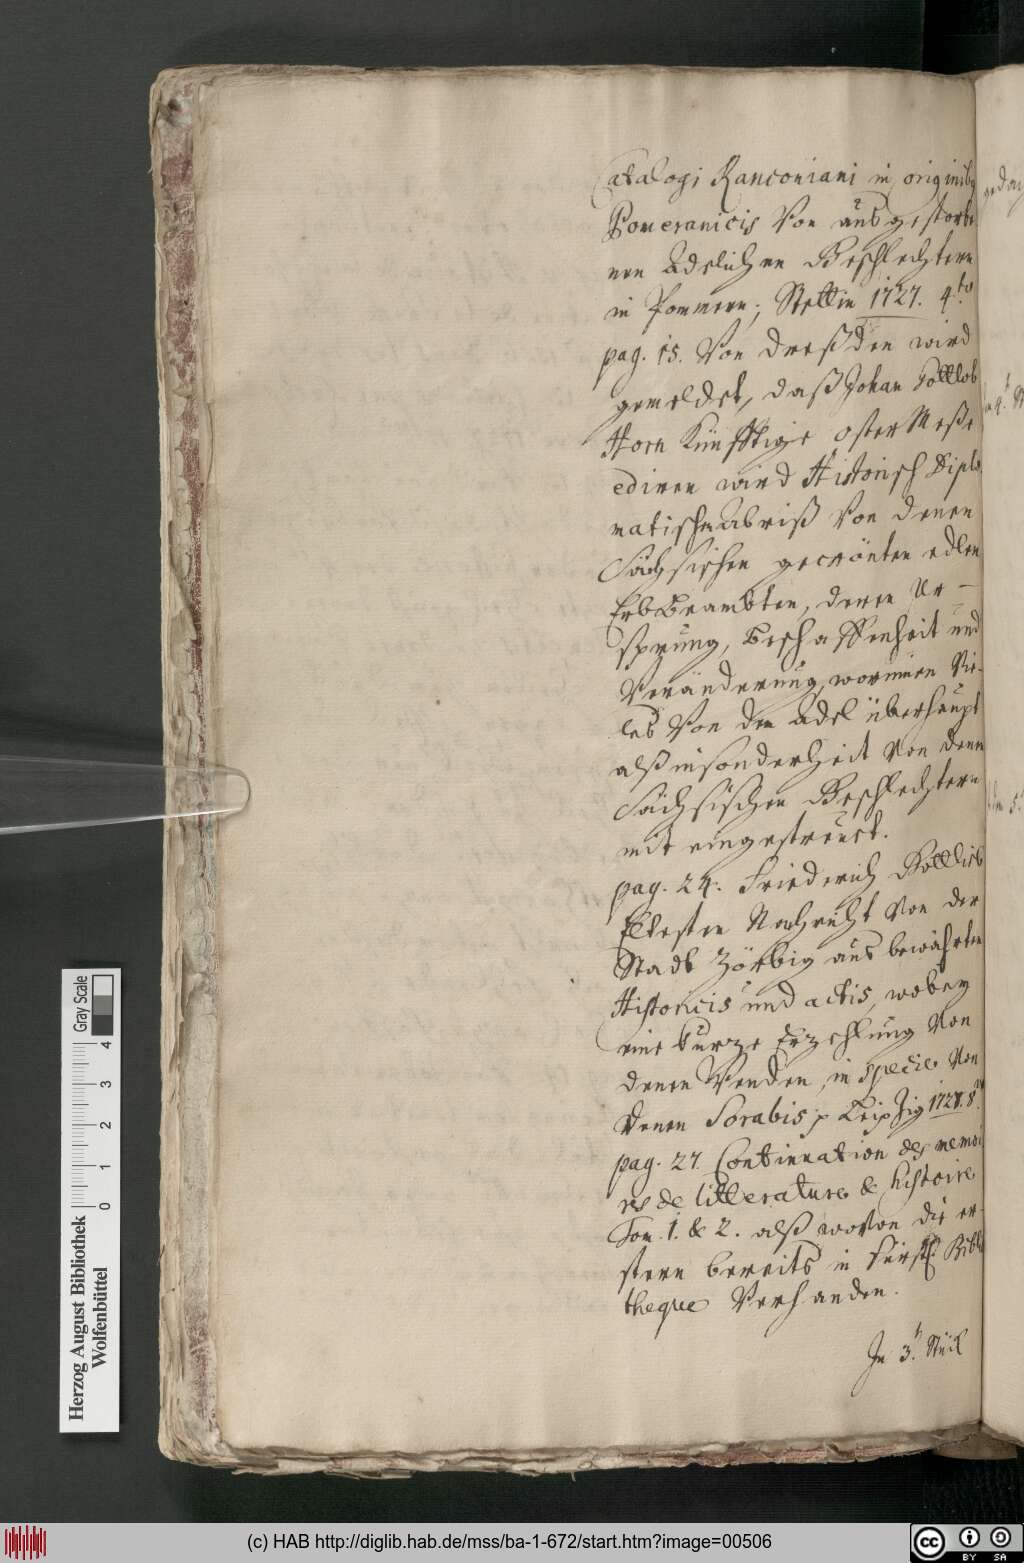 Catalogi Ranconiani in originib9
Pomeranicis Von ausgestorbe
nen Adelichen Geschlechtern
in Pommern; Stettin 1727. 4to
pag. 15. Von Dreßden wird
gemeldet, daß Johan Gottlob
Horn künfftige OsterMeße
ediren wird Historisch Diplo
matischen Abriß Von denen
Sächsischen gecrönten edlen
ErbBeambten, deren Ur-
sprung, Beschaffenheit und
Veränderung, worinnen Vie-
les Von dem Adel überhaupt
alß insonderheit Von denen
Sächsischen Geschlechtern
mit eingestreuet.
pag. 24. Friederich Gottlieb
Eltesten Nachricht Von der
Stadt Zörbig aus bewährten
Historicis und actis, wobey
eine kurze Erzehlung Von
denen Wenden, in specie Von
denen Sorabis p Leipzig 1727. 8vo
pag. 27. Continuation des memoi
res de litterature & histoire
Tom. 1. & 2. alß woVon die er-
stern bereits in fürstl. Biblio
theque Verhanden.
In 3n. Stück
Herzog August Bibliothek
Wolfenbüttel
0 1 2 3 4
Gray Scale
(c) HAB http://diglib.hab.de/mss/ba-1-672/start.htm?image=00506
cc BY SA